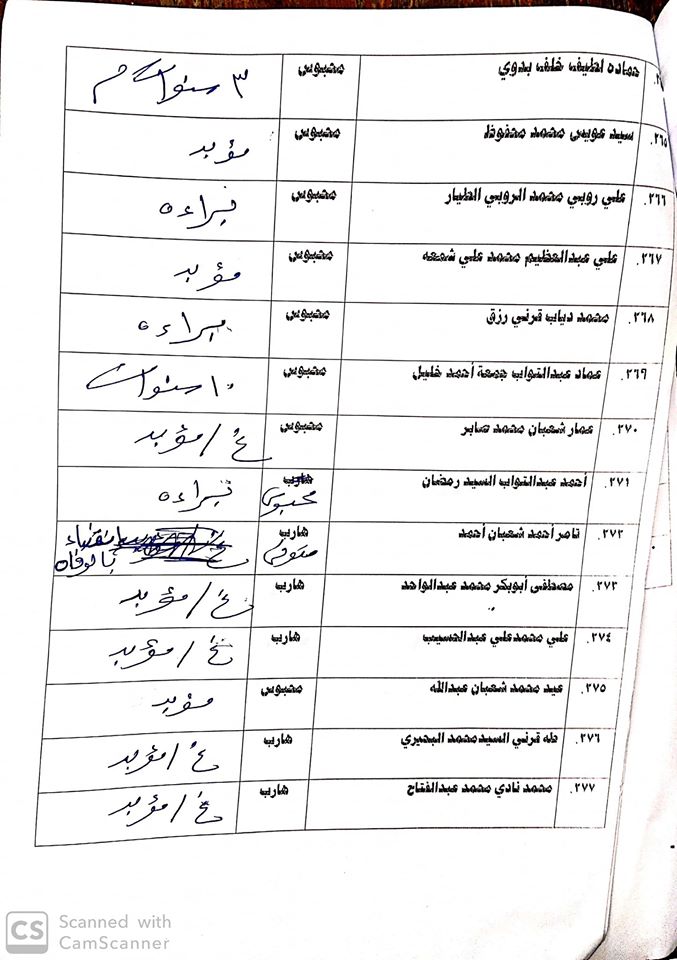 حماده لطيف خلف بدوي محبوس ٣ سنوات
٢٦٥. سيد عويس محمد محفوظ محبوس مؤبد
٢٦٦. علي روبي محمد الروبي الطيار محبوس براءه
٢٦٧. علي عبدالعظيم محمد علي شمعه محبوس مؤبد
٢٦٨. محمد دياب قرني رزق محبوس براءه
٢٦٩. عماد عبدالتواب جمعة أحمد خليل محبوس ١٠ سنوات
٢٧٠. عمار شعبان محمد صابر محبوس غ / مؤبد
٢٧١. أحمد عبدالتواب السيد رمضان هارب محبوس براءه
٢٧٢. تامر أحمد شعبان أحمد هارب متوفى انقضاء بالوفاه
٢٧٣. مصطفى أبوبكر محمد عبدالواحد هارب غ / مؤبد
٢٧٤. علي محمد علي عبدالحسيب هارب غ / مؤبد
٢٧٥. عيد محمد شعبان عبدالله محبوس مؤبد
٢٧٦. طه قرني السيد محمد البحيري هارب غ / مؤبد
٢٧٧. محمد نادي محمد عبدالفتاح هارب غ / مؤبد
CS Scanned with
CamScanner